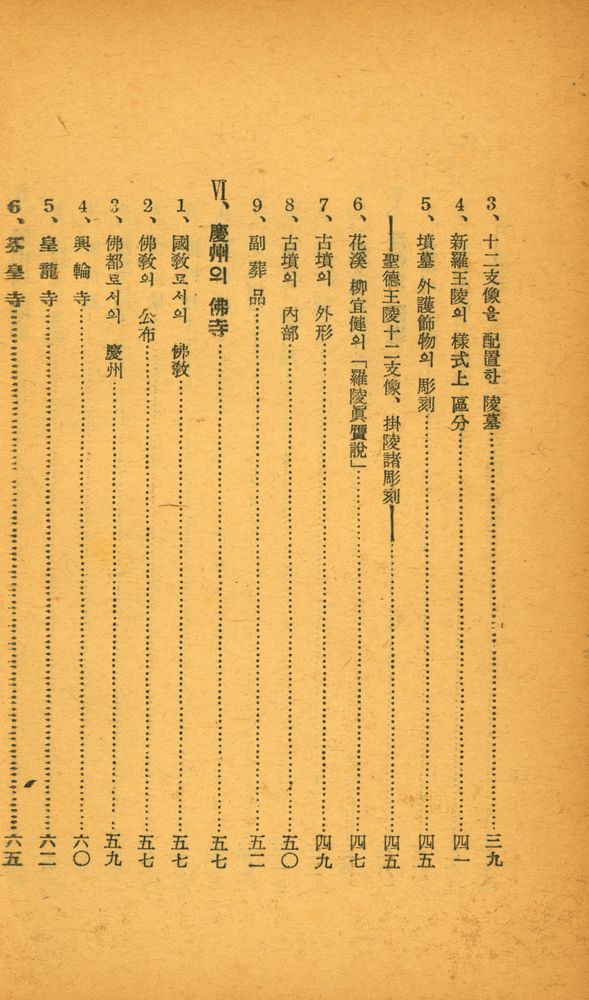 3、十二支像을 配置한 陵墓……三九
4、新羅王陵의 樣式上 區分……四一
5、墳墓 外護飾物의 彫刻……四五
━━聖德王陵十二支像、掛陵諸彫刻━━……四五
6、花溪 柳宜健의「羅陵眞贋說」……四七
7、古墳의 外形……四九
8、古墳의 內部……五〇
9、副葬品……五二
Ⅵ、慶州의 佛寺……五七
1、國敎로서의 佛敎……五七
2、佛敎의 公布……五七
3、佛都로서의 慶州……五九
4、興輪寺……六〇
5、皇龍寺……六二
6、芬皇寺……六五